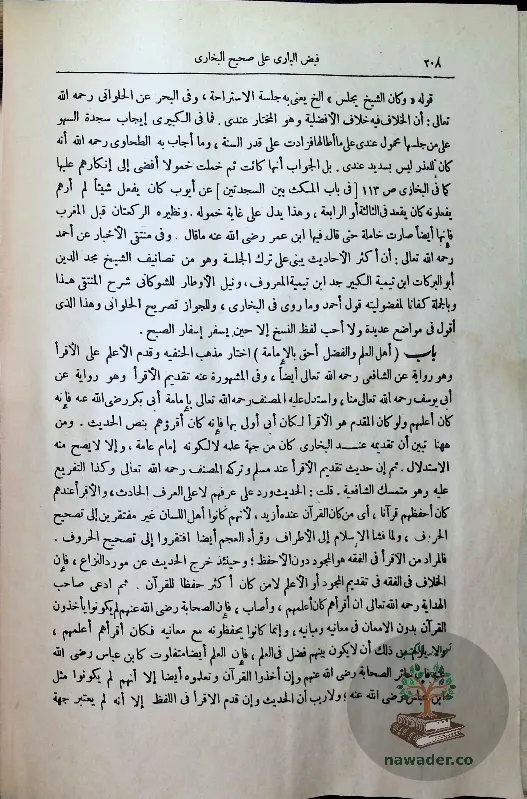 ٢٠٨ فيض البارى على صحيح البخارى
قوله « وكان الشيخ يجلس » الخ يعنى به جلسة الاستراحة ، وفى البحر عن الحلوانى رحمه الله
تعالى : أن الخلاف فيه خلاف الأفضلية وهو المختار عندى . فما فى الكبيرى إيجاب سجدة السهو
على من جلسها محمول عندى على ما أطالها فزادت على قدر السنة ، وما أجاب به الطحاوى رحمه الله أنه
كان للعذر ليس بسديد عندى . بل الجواب أنها كانت ثم خملت خمولا أفضى إلى إنكارهم عليها
كما فى البخارى ص ١١٣ [ فى باب المكث بين السجدتين ] عن أيوب كان يفعل شيئاً لم أرهم
يفعلونه كان يقعد فى الثالثة أو الرابعة ، وهذا يدل على غاية خموله . ونظيره الركعتان قبل المغرب
فإنها أيضاً صارت خاملة حتى قال فيها ابن عمر رضى الله عنه ما قال . وفى منتقى الأخبار عن أحمد
رحمه الله تعالى : أن أكثر الأحاديث يبنى على ترك الجلسة وهو من تصانيف الشيخ مجد الدين
أبو البركات ابن تيمية الكبير جد ابن تيمية المعروف ، ونيل الاوطار للشوكانى شرح المنتقى هذا
وبالجملة كفانا لمفضوليته قول أحمد وما روى فى البخارى ، وللجواز تصريح الحلوانى وهذا الذى
أقول فى مواضع عديدة ولا أحب لفظ النسخ إلا حين يسفر إسفار الصبح .
باب ( أهل العلم والفضل أحق بالإمامة ) اختار مذهب الحنفيه وقدم الأعلم على الأقرأ
وهو رواية عن الشافعى رحمه الله تعالى أيضاً ، وفى المشهورة عنه تقديم الأقرأ وهو رواية عن
أبى يوسف رحمه الله تعالى منا ، واستدل عليه المصنف رحمه الله تعالى بإمامة أبى بكر رضى الله عنه فإنه
كان أعلمهم ولو كان المقدم هو الأقرأ لكان أبى أولى بها فإنه كان أقرؤهم بنص الحديث . ومن
ههنا تبين أن تقديمه عند البخارى كان من جهة علمه لا لكونه إمام عامة ، وإلا لا يصح منه
الاستدلال . ثم إن حديث تقديم الأقرأ عند مسلم وتركه المصنف رحمه الله تعالى وكذا التفريع
عليه وهو متمسك الشافعية . قلت : الحديث ورد على عرفهم لا على العرف الحادث ، والأقرأ عندهم
كان أحفظهم قرآنا ، أى من كان القرآن عنده أزيد ، لأنهم كانوا أهل اللسان غير مفتقرين إلى تصحيح
الحروف ، ولما فشا الإسلام إلى الأطراف وقرأه العجم أيضا افتقروا إلى تصحيح الحروف .
فالمراد من الأقرأ فى الفقه هو المجود دون الأحفظ ؛ وحينئذ خرج الحديث عن مورد النزاع ، فإن
الخلاف فى الفقه فى تقديم المجود أو الأعلم لا من كان أكثر حفظا للقرآن . ثم ادعى صاحب
الهداية رحمه الله تعالى ان أقرأهم كان أعلمهم ، وأصاب ، فإن الصحابة رضى الله عنهم لم يكونوا يأخذون
القرآن بدون الامعان فى معانيه ومبانيه ، وإنما كانوا يحفظونه مع معانيه فكان أقرأهم أعلمهم ،
ولا يلزم من ذلك أن لا يكون بينهم فضل فى العلم ، فإن العلم أيضا متفاوت كابن عباس رضى الله
عنه فان سائر الصحابة رضى الله عنهم وإن أخذوا القرآن وتعلموه أيضا إلا أنهم لم يكونوا مثل
ابن عباس رضى الله عنه ؛ ولا ريب أن الحديث وإن قدم الاقرأ فى اللفظ إلا أنه لم يعتبر جهة
nawader.co